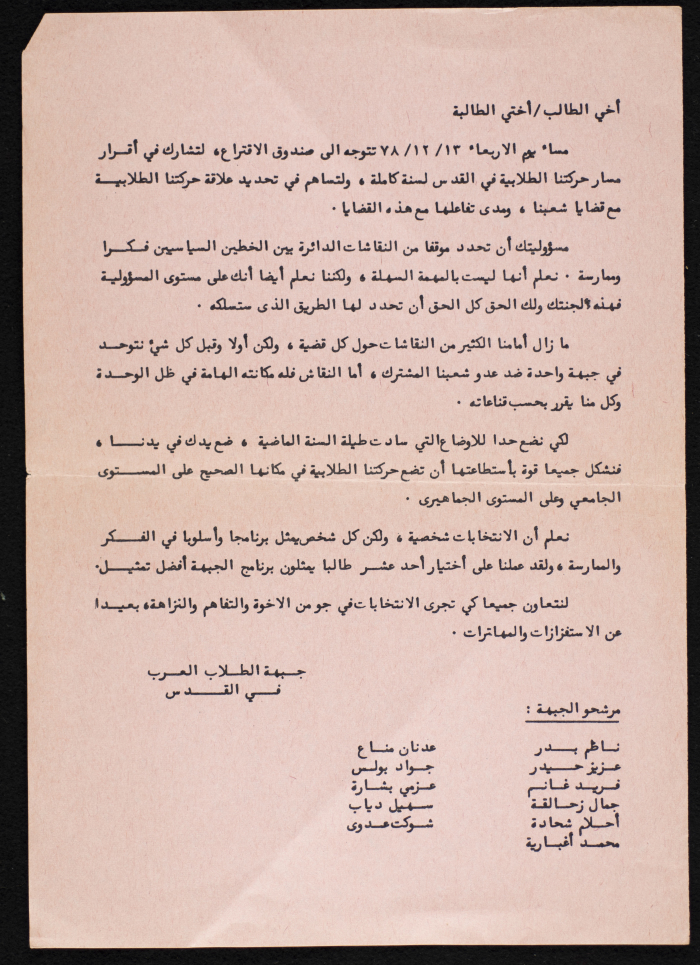 أخي الطالب/أختي الطالبة
مساء يوم الاربعاء ١٣/ ١٢/ ٧٨ تتوجه الى صندوق الاقتراع، لتشارك في أقـرار
مسار حركتنا الطلابية في القدس لسنة كاملة ، ولتساهم في تحديد علاقة حركتنا الطلابيـــة
مع قضايا شعبنا ، ومدى تفاعلها مع هذه القضايا ٠
مسؤوليتك أن تحدد موقفا من النقاشات الدائرة بين الخطين السياسيين فـكـرا
وممارسة ٠ نعلم أنها ليست بالمهمة السهلة ، ولكننا نعلم أيضا أنك على مستوى المسؤولية
فهذه لجنتك ولك الحق كل الحق أن تحدد لها الطريق الذى ستسلكه ٠
ما زال أمامنا الكثير من النقاشات حول كل قضية ، ولكن أولا وقبل كل شيء نتوحـد
في جبهة واحدة ضد عدو شعبنا المشترك ، أما النقاش فله مكانته الهامة في ظل الوحـدة
وكل منا يقرر بحسب قناعاته ٠
لكي نضع حدا للاوضاع التي سادت طيلة السنة الماضية ، ضع يدك في يدنــا ،
فنشكل جميعا قوة بأستطاعتها أن تضع حركتنا الطلابية في مكانها الصحيح على المســتوى
الجامعي وعلى المستوى الجماهيرى ٠
نعلم أن الانتخابات شخصية ، ولكن كل شخص يمثل برنامجا وأسلوبا في الفــكر
والممارسة ، ولقد عملنا على أختيار أحد عشـر طالبا يمثلون برنامج الجبهة أفضل تمثيـل٠
لنتعاون جميعا كي تجرى الانتخابات في جو من الاخوة والتفاهم والنزاهة، بعيـدا
عن الاستفزازات والمهاترات ٠
جـبهة الطـلاب العـرب
فــي القــدس
مرشحو الجبهة :
نـاظم بــدر
عـزيز حـيدر
فـريد غـانـم
جمال زحـالقـة
أحـلام شحادة
محمـد أغبـارية
عدنان منـاع
جـواد بولـس
عـزمي بشـارة
سـهيل ديـاب
شـوكت عـدوى